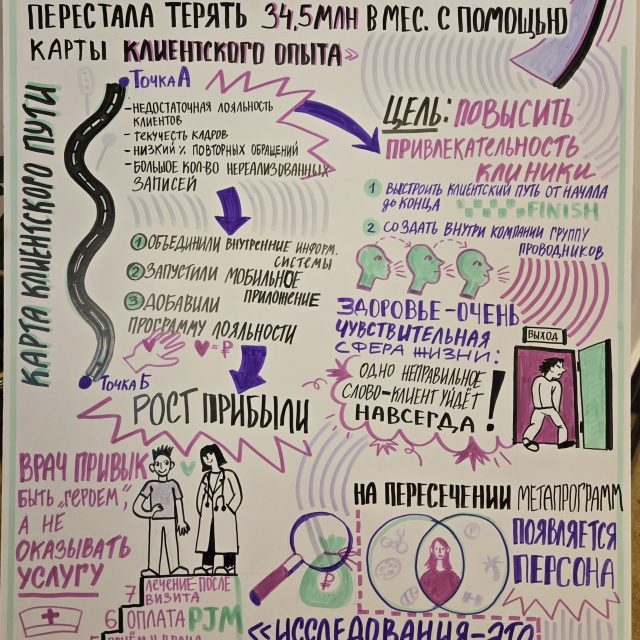 ПЕРЕСТАЛА ТЕРЯТЬ 34,5МЛН В МЕС. С ПОМОЩЬЮ
КАРТЫ КЛИЕНТСКОГО ОПЫТА»
КАРТА КЛИЕНТСКОГО ПУТИ
ТОЧКА А
- НЕДОСТАТОЧНАЯ ЛОЯЛЬНОСТЬ
КЛИЕНТОВ
- ТЕКУЧЕСТЬ КАДРОВ
- НИЗКИЙ % ПОВТОРНЫХ ОБРАЩЕНИЙ
- БОЛЬШОЕ КОЛ-ВО НЕРЕАЛИЗОВАННЫХ
ЗАПИСЕЙ
1 ОБЪЕДИНИЛИ ВНУТРЕННИЕ ИНФОРМ.
СИСТЕМЫ
2 ЗАПУСТИЛИ МОБИЛЬНОЕ
ПРИЛОЖЕНИЕ
3 ДОБАВИЛИ
ПРОГРАММУ ЛОЯЛЬНОСТИ
♥=₽
ТОЧКА Б
РОСТ ПРИБЫЛИ
ЦЕЛЬ: ПОВЫСИТЬ
ПРИВЛЕКАТЕЛЬНОСТЬ
КЛИНИКИ
1 ВЫСТРОИТЬ КЛИЕНТСКИЙ ПУТЬ ОТ НАЧАЛА
ДО КОНЦА FINISH
2 СОЗДАТЬ ВНУТРИ КОМПАНИИ ГРУППУ
ПРОВОДНИКОВ
ЗДОРОВЬЕ-ОЧЕНЬ
ЧУВСТВИТЕЛЬНАЯ
СФЕРА ЖИЗНИ:
ОДНО НЕПРАВИЛЬНОЕ
СЛОВО-КЛИЕНТ УЙДЁТ
НАВСЕГДА!
ВЫХОД
ВРАЧ ПРИВЫК
БЫТЬ „ГЕРОЕМ",
А НЕ
ОКАЗЫВАТЬ
УСЛУГУ
7 ЛЕЧЕНИЕ ПОСЛЕ
ВИЗИТА
6 ОПЛАТА PJM
₽
НА ПЕРЕСЕЧЕНИИ МЕТАПРОГРАММ
ПОЯВЛЯЕТСЯ
ПЕРСОНА
«ИССЛЕДОВАНИЯ-ЭТО